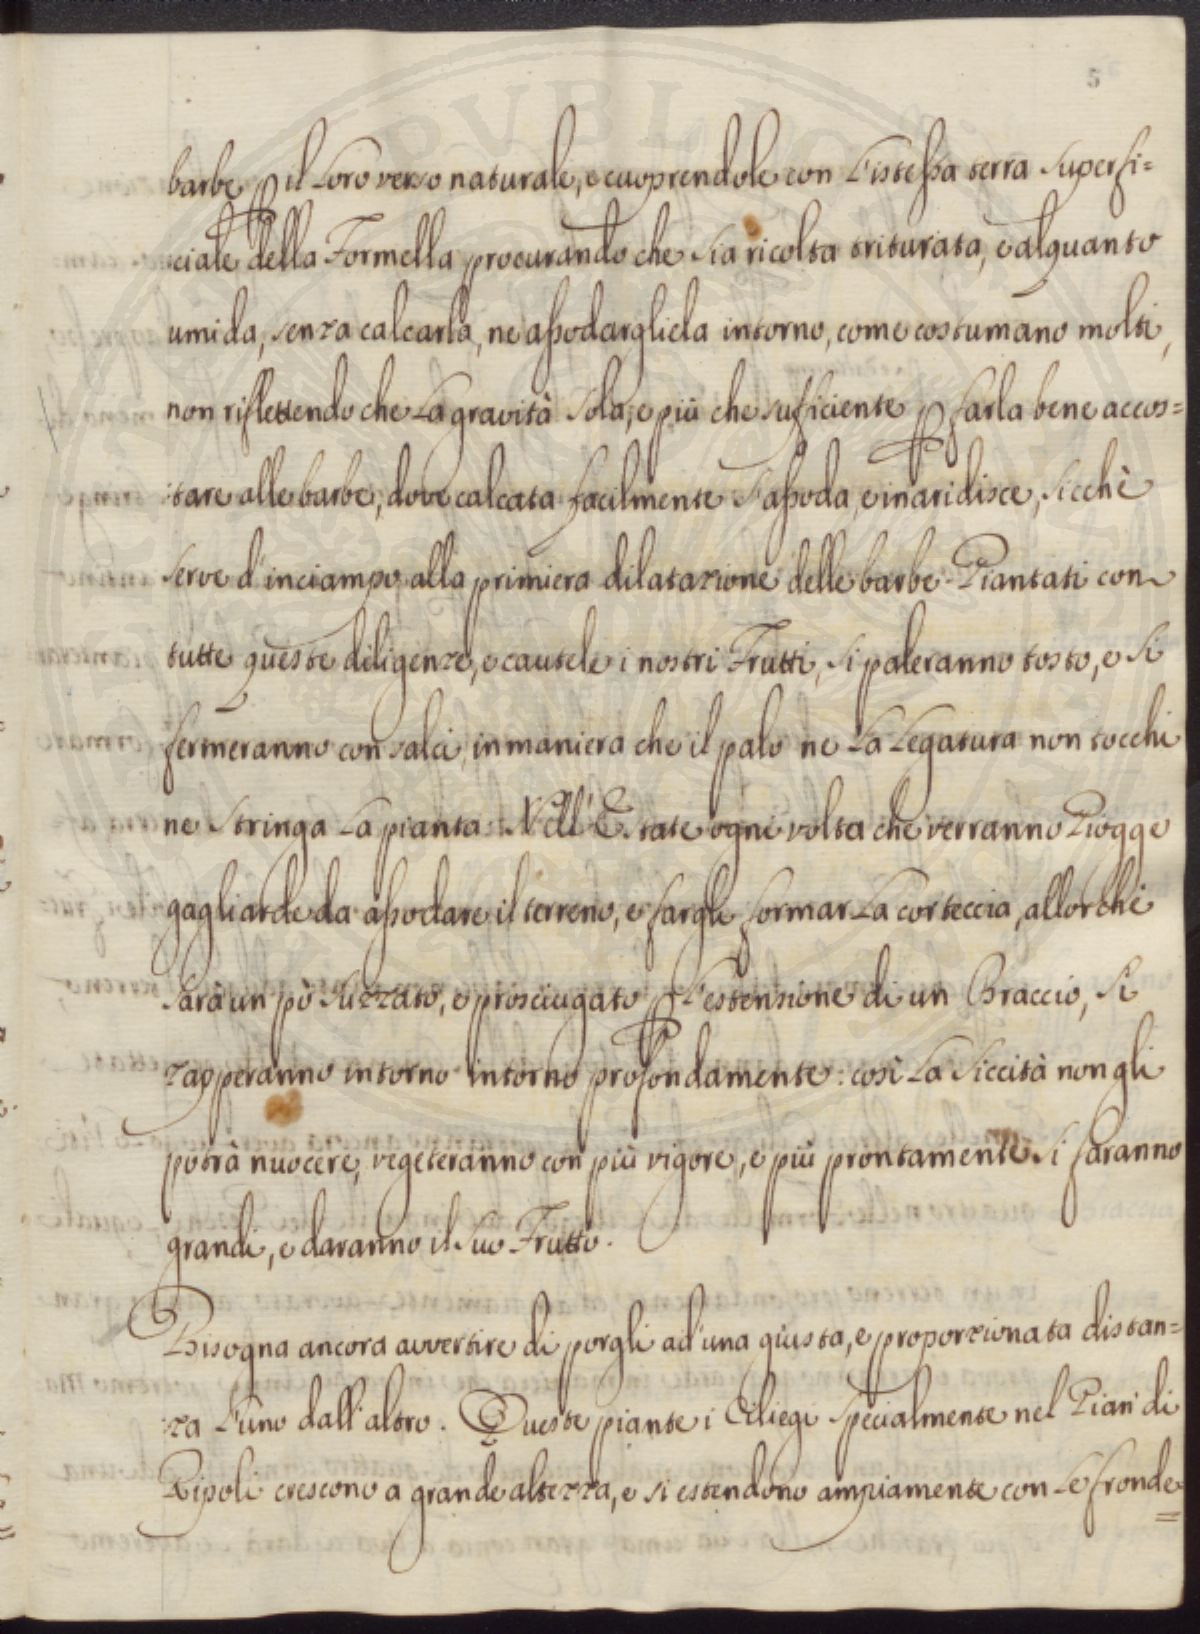 5
barbe ꝑ il loro verso naturale, e cuoprendole con l'istessa terra superfi=
ciale della Formella procurando che sia ricolta triturata, e alquanto
umida, senza calcarla, ne assodargliela intorno, come costumano molti,
non riflettendo che la gravità sola, e più che suficiente ꝑ farla bene accos=
tare alle barbe, dove calcata facilmente s'assoda, e inaridisce, sicchè
serve d'inciampo alla primiera dilatazione delle barbe. Piantati con
tutte queste diligenze, e cautele i nostri Frutti, si paleranno tosto, e si
fermeranno con salci, in maniera che il palo ne la legatura non tocchi
ne stringa la pianta. Nell'Estate ogni volta che verranno Piogge
gagliarde da assodare il terreno, e fargli formar la corteccia, allorchè
sarà un pò suzzato, e prosciugato ꝑ l'estensione di un Braccio, si
zapperanno intorno intorno profondamente: così la siccità non gli
potrà nuocere, vegeteranno con più vigore, e più prontamente si faranno
grandi, e daranno il suo Frutto.
Bisogna ancora avvertire di porgli ad'una giusta, e proporzionata distan=
za l'uno dall'altro. Queste piante i Ciliegi specialmente nel Pian di
Ripoli crescono a grande altezza, e si estendono ampiamente con le fronde
=
PVBLIC